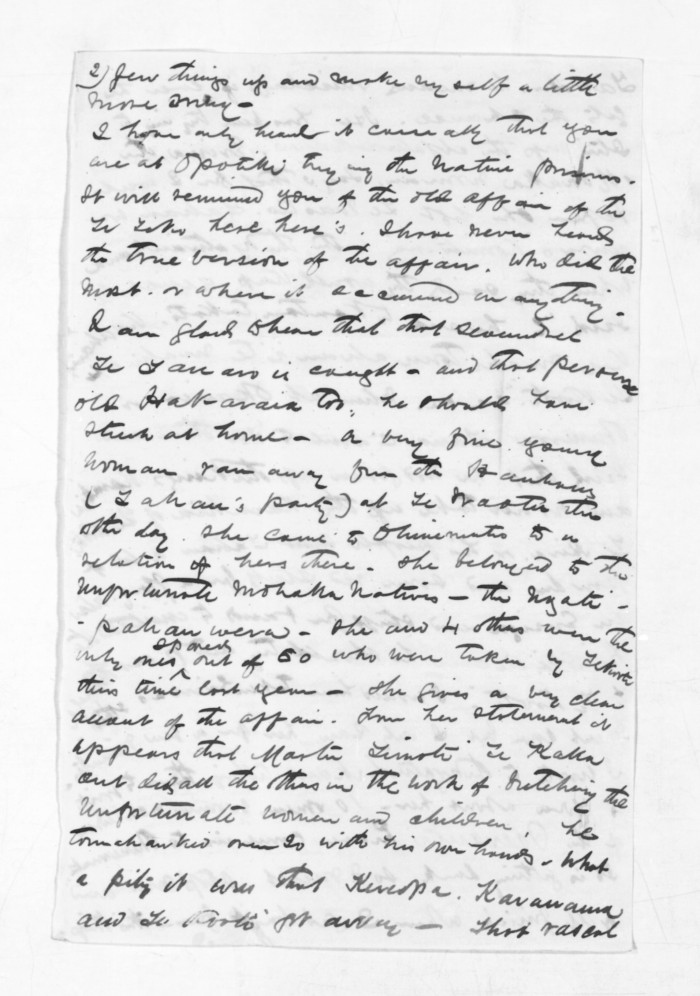 2) few things up and make my self a little
more snug -
I have only heard it casually that you
are at Opotiki trying the Native prisoners.
It will remind you of the old affair of the
Te Teko here here's. I have never heard
the true version of the affair. Who did the
most. or where it occurred or anything -
I am glad to hear that that scoundrel
Te is caught - and that perverse
old Hakaraia too, he should have
stuck at home - A very fine young
woman ran away from the Hauhaus
( party) at Te the
other day. She came to Ohinemutu to a
relation of hers there. She belonged to the
unfortunate Mohaka Natives - the Ngati -
- pahauwera - She and 4 others were the
only ones spared out of 60 who were taken by Te Kooti
this time last year - She gives a very clear
account of the affair. From her statement it
appears that Timoti Te Kaka
out did all the others in the work of butching the
unfortunate women and children, he
tomahawked over 20 with his own hands. What
a pity it was that Kereopa.
and Te Kooti got away - That rascal